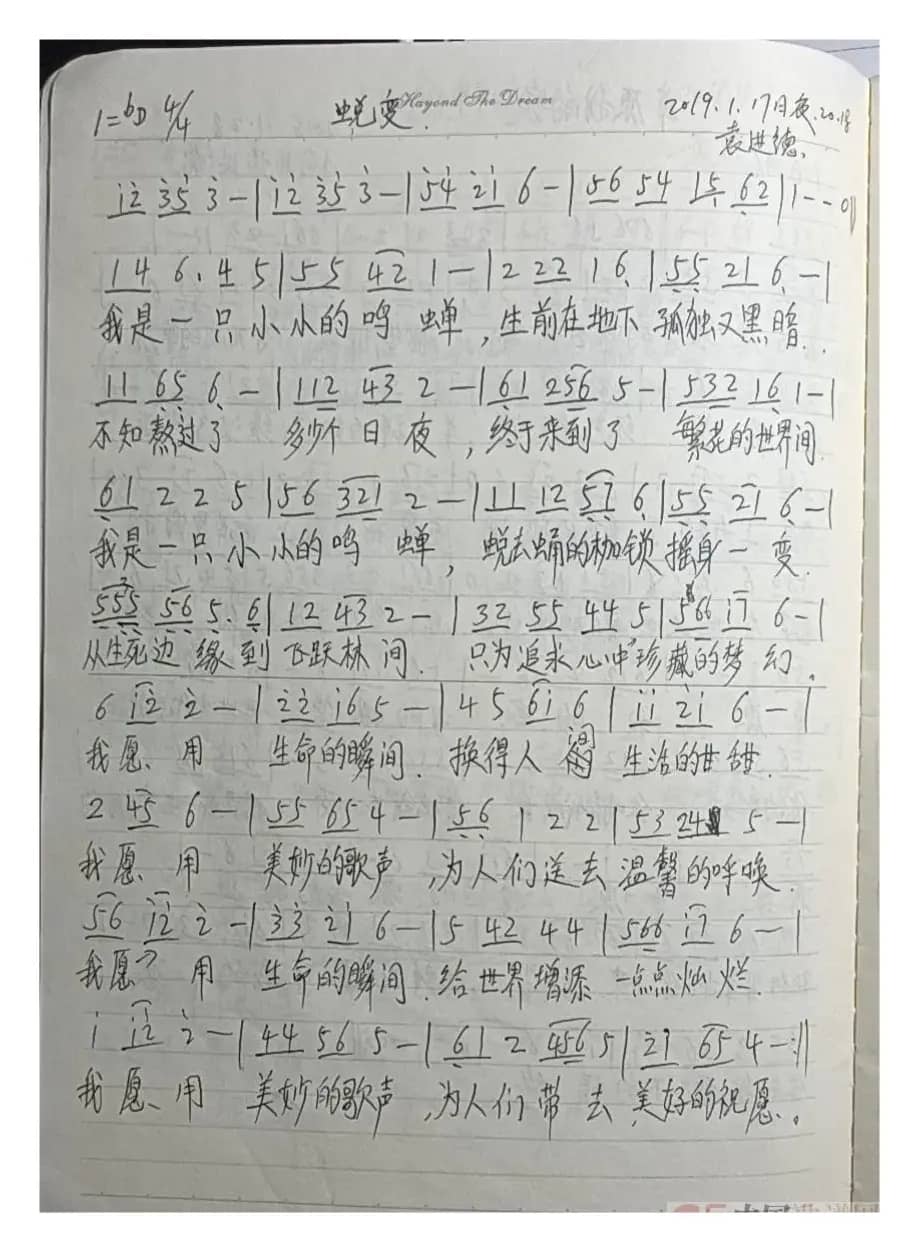 1=ᵇD 4/4 蜕变. Hayond The Dream 2019.1.17日夜.20.18
袁进德.
i2 35 3 - | i2 35 3 - | 54 21 6 - | 56 54 15 62 | 1 - - 0 ||
14 6. 4 5 | 55 42 1 - | 2 22 1 6 | 55 21 6 - |
我是一只小小的鸣 蝉,生前在地下 孤独又黑暗.
11 65 6 - | 112 43 2 - | 61 256 5 - | 532 16 1 - |
不知熬过了 多少个日夜,终于来到了 繁花的世界间.
61 2 2 5 | 56 321 2 - | 11 12 57 6 | 55 21 6 - |
我是一只小小的鸣 蝉, 蜕去蛹的枷锁 摇身一变.
555 56 5. 6 | 12 43 2 - | 32 55 44 5 | 566 17 6 - |
从生死边缘到 飞跃林间. 只为追求心中珍藏的梦幻.
6 i2 2 - | 22 i6 5 - | 4 5 6i 6 | ii 2i 6 - |
我愿、用 生命的瞬间.换得人间 生活的甘甜.
2 45 6 - | 55 65 4 - | 56 1 2 2 | 53 24 5 - |
我愿、用 美妙的歌声,为人们送去 温馨的呼唤.
56 i2 2 - | 33 2i 6 - | 5 42 4 4 | 566 i7 6 - |
我愿、用 生命的瞬间.给世界增添 一点点灿烂.
i i2 2 - | 44 56 5 - | 61 2 456 5 | 21 65 4 - :||
我愿、用 美妙的歌声,为人们带去 美好的祝愿.。